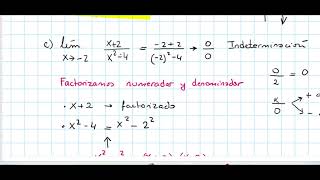 c) lím x→-2 x+2/x²-4 = -2+2/(-2)²-4 → 0/0 Indeterminación
0/2 = 0
Factorizamos numerador y denominador
• x+2 → factorizado
• x²-4 = x² - 2²